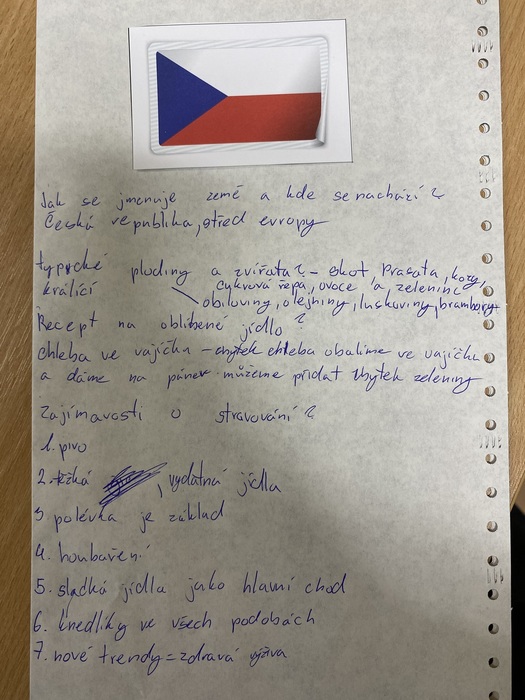 Jak se jmenuje země a kde se nachází?
Česká republika, střed evropy
typycké plodiny a zvířata? - skot, prasata, kozy,
králíci cykrová řepa, ovoce a zelenine
obiloviny, olejniny, luskoviny, brambory
Recept na oblíbené jídlo?
chleba ve vajíčku - zbytek chleba obalíme ve vajíčku
a dáme na pánev můžeme přidat zbytek zeleniny
Zajímavosti o stravování?
1. pivo
2. těžká, vydatná jídla
3 polévka je základ
4. houbaření
5. sladká jídla jako hlavní chod
6. knedlíky ve všech podobách
7. nové trendy = zdravá výživa